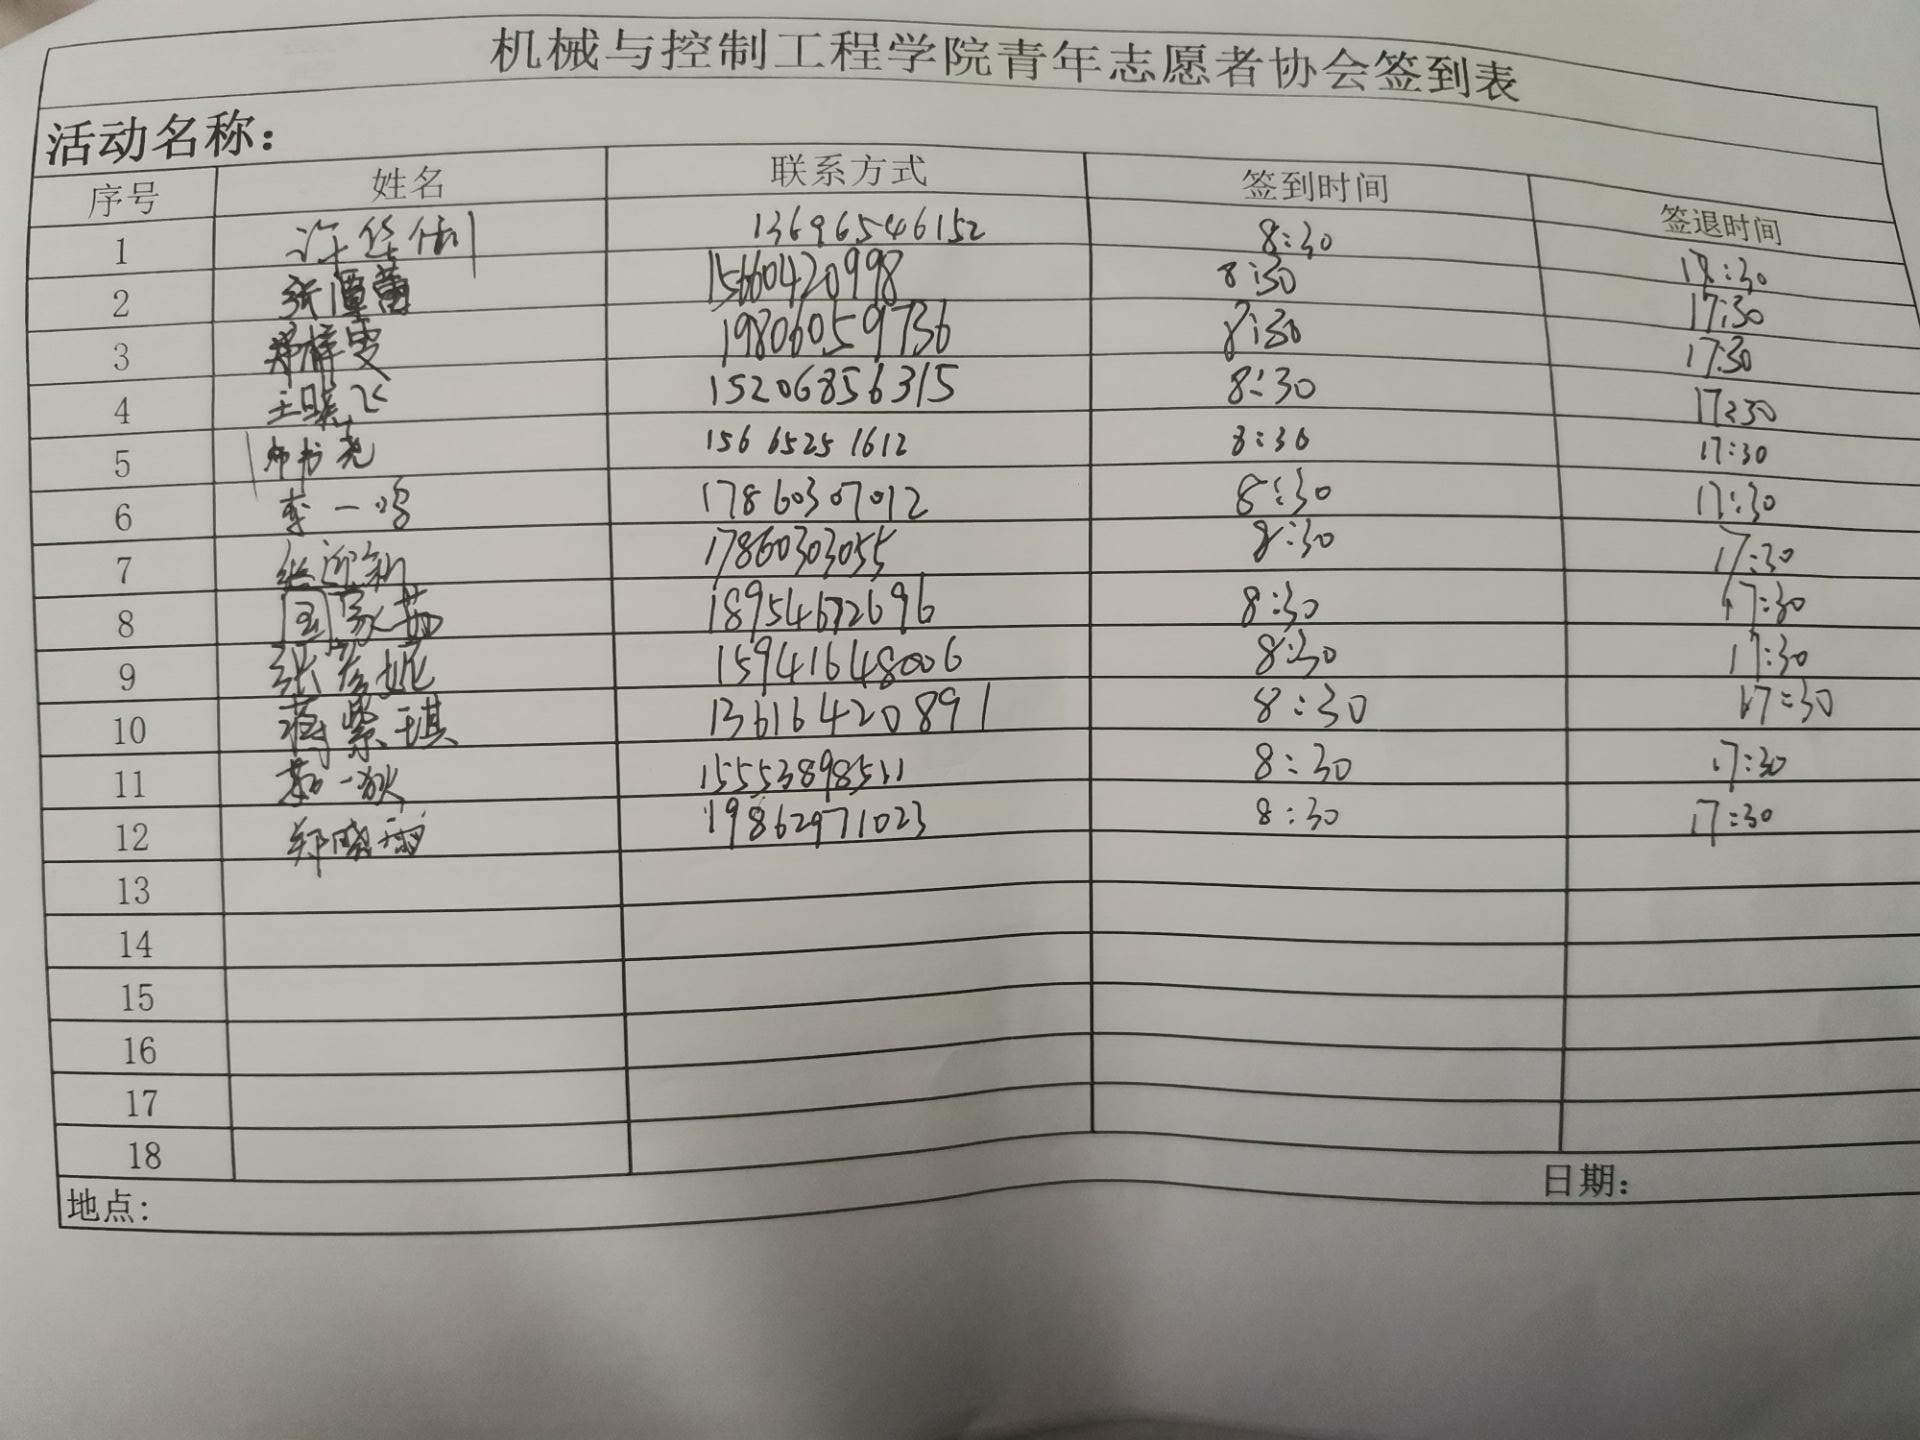 机械与控制工程学院青年志愿者协会签到表
活动名称：
序号 姓名 联系方式 签到时间 签退时间
1 许华 13696546152 8:30 17:30
2 张潭蕾 15660420998 8:30 17:30
3 郑梓雯 19806059736 8:30 17:30
4 王晓飞 15206856315 8:30 17:30
5 帅书尧 15665251612 8:30 17:30
6 李一鸣 17860307012 8:30 17:30
7 张迎新 17860303055 8:30 17:30
8 国家茹 18954672696 8:30 17:30
9 张彦妮 15941648006 8:30 17:30
10 蒋紫琪 13616420891 8:30 17:30
11 一狄 15553898511 8:30 17:30
12 郑晓雨 19862971023 8:30 17:30
13
14
15
16
17
18
地点： 日期：